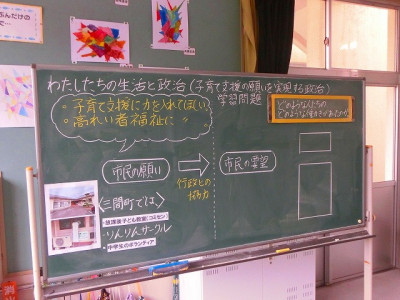 ぶんだけの
わたしたちの生活と政治(子育て支援の願いを実現する政治)
学習問題
・子育て支援に力を入れてほしい
・高れい者福祉に
どのような人たちの
どのような働きがあったのか
市民の願い
行政との
協力
市民の要望
〈三間町では〉
・放課後子ども教室(コミセン)
りんりんサークル
・中学生のボランティア